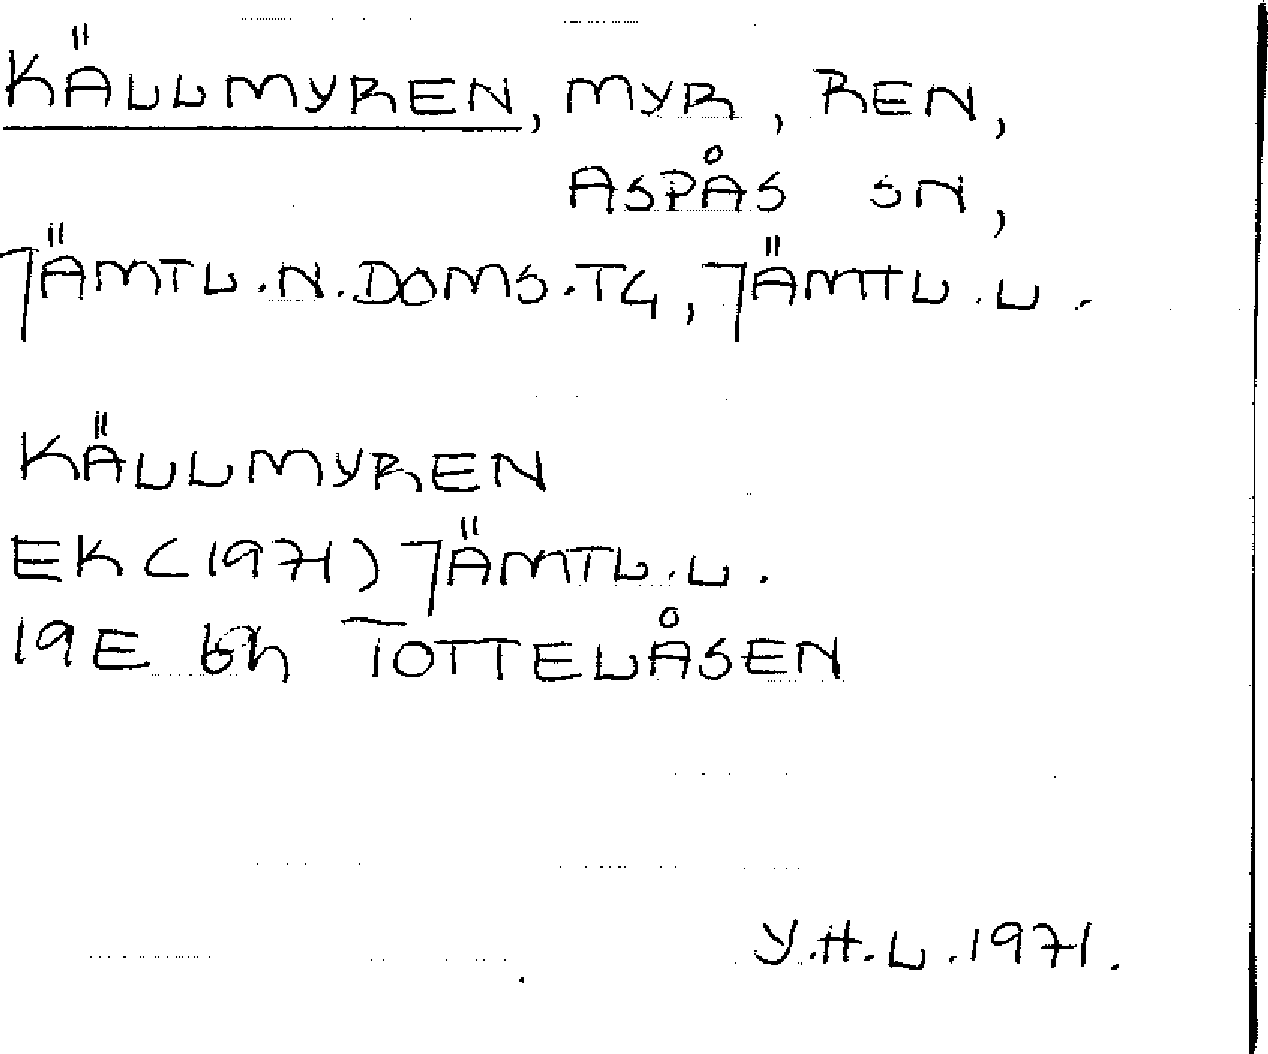 KÄLLMYREN, MYR, REN,
ASPÅS SN,
JÄMTL.N.DOMS.TG, JÄMTL.L.
KÄLLMYREN
EK (1971) JÄMTL.L.
19E TOTTELÅSEN
Y.H.L.1971.